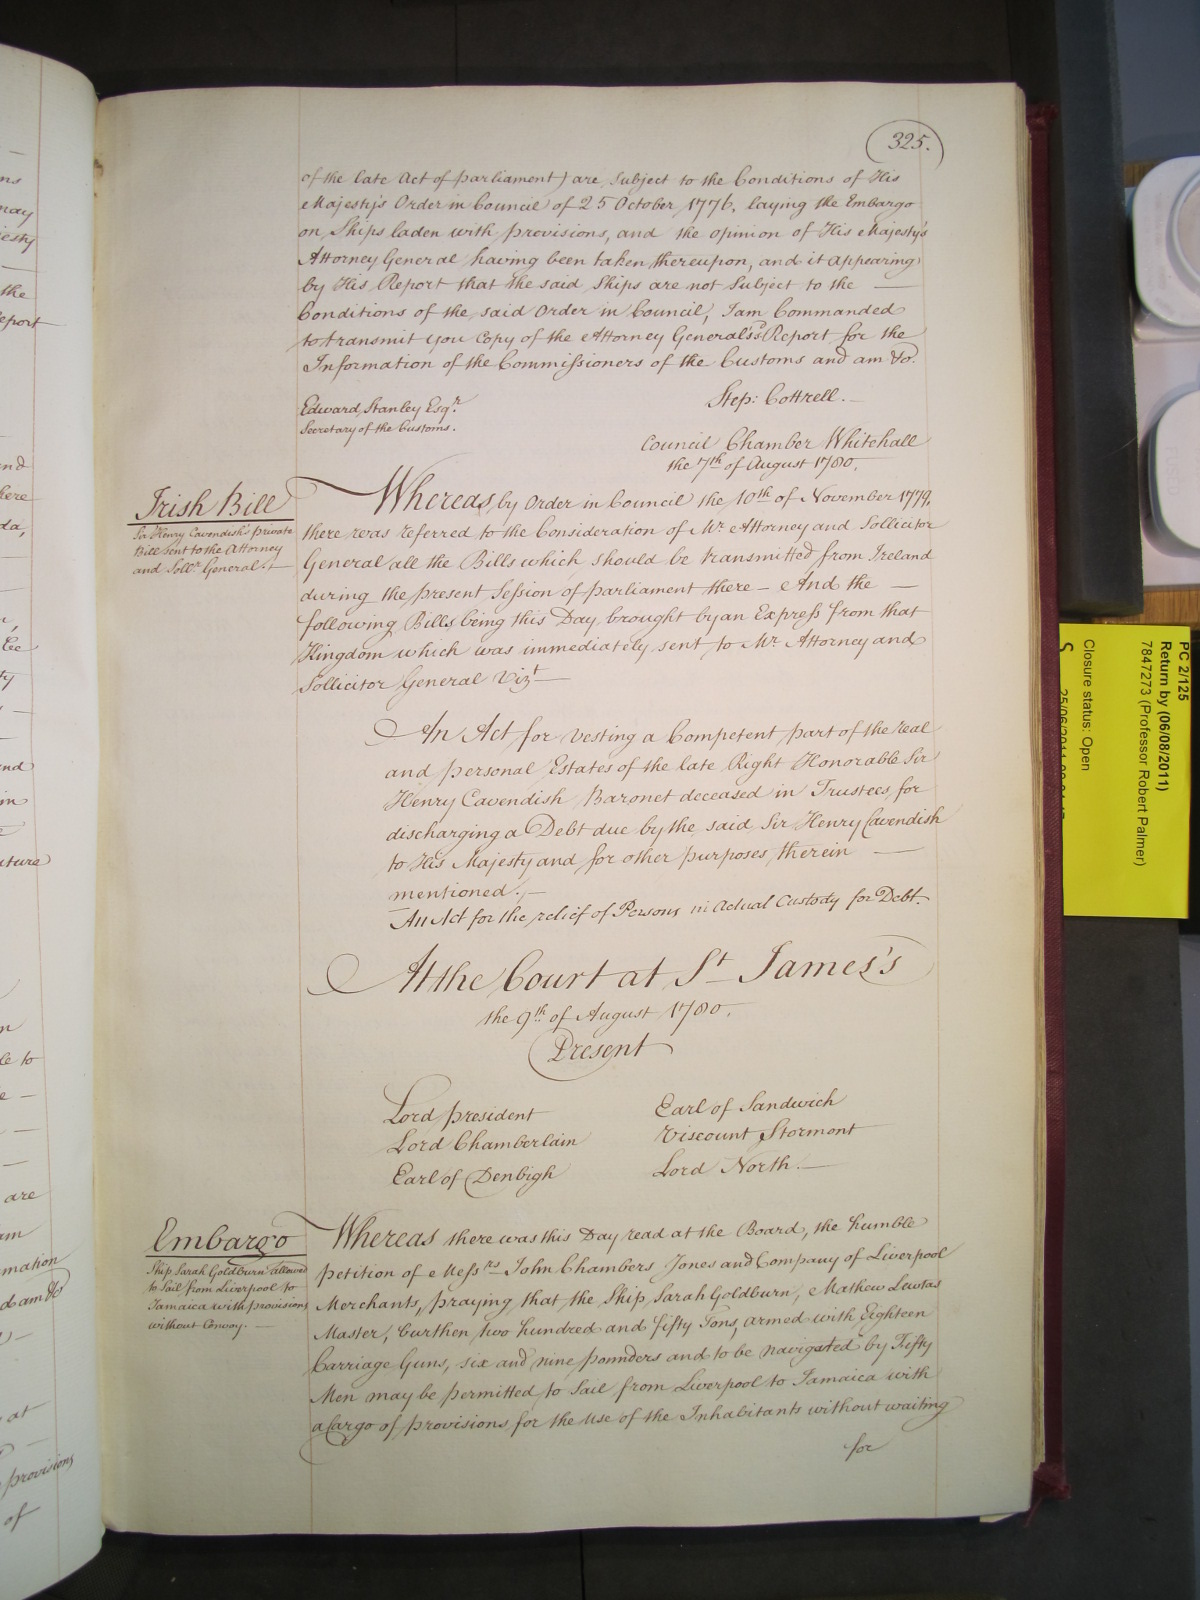 325.
of the late Act of parliament) are subject to the Conditions of His
Majesty's Order in Council of 25 October 1776, laying the Embargo
on Ships laden with provisions, and the opinion of His Majesty's
Attorney General having been taken thereupon, and it appearing
by His Report that the said Ships are not Subject to the —
Conditions of the said Order in Council, I am Commanded
to transmit you Copy of the Attorney General's Report for the
Information of the Commissioners of the Customs and am &c.
Step: Cottrell. —
Edward Stanley Esqr.
Secretary of the Customs.
Council Chamber Whitehall
the 7th of August 1780.
Irish Bill
Sir Henry Cavendish's private
Bill sent to the Attorney
and Sollr General. —
Whereas by Order in Council the 10th of November 1779,
there was referred to the Consideration of Mr Attorney and Sollicitor
General all the Bills which should be transmitted from Ireland
during the present Session of parliament there — And the —
following Bills being this Day brought by an Express from that
Kingdom which was immediately sent to Mr Attorney and
Sollicitor General Vizt —
An Act for vesting a Competent part of the real
and personal Estates of the late Right Honorable Sir
Henry Cavendish Baronet deceased in Trustees, for
discharging a Debt due by the said Sir Henry Cavendish
to His Majesty and for other purposes therein —
mentioned. —
An Act for the relief of Persons in actual Custody for Debt.
At the Court at St James's
the 9th of August 1780.
Present
Lord president
Earl of Sandwich
Lord Chamberlain
Viscount Stormont
Earl of Denbigh
Lord North. —
Embargo
Ship Sarah Goldburn allowed
to Sail from Liverpool to
Jamaica with provisions
without Convoy. —
Whereas there was this Day read at the Board, the humble
petition of Messrs John Chambers Jones and Company of Liverpool
Merchants, praying that the Ship Sarah Goldburn, Mathew
Master, burthen two hundred and fifty Tons, armed with Eighteen
Carriage Guns, six and nine pounders and to be navigated by Fifty
Men may be permitted to Sail from Liverpool to Jamaica with
a Cargo of provisions for the Use of the Inhabitants without waiting
for
PC 2/125
Return by (06/08/2011)
7847273 (Professor Robert Palmer)
Closure status: Open